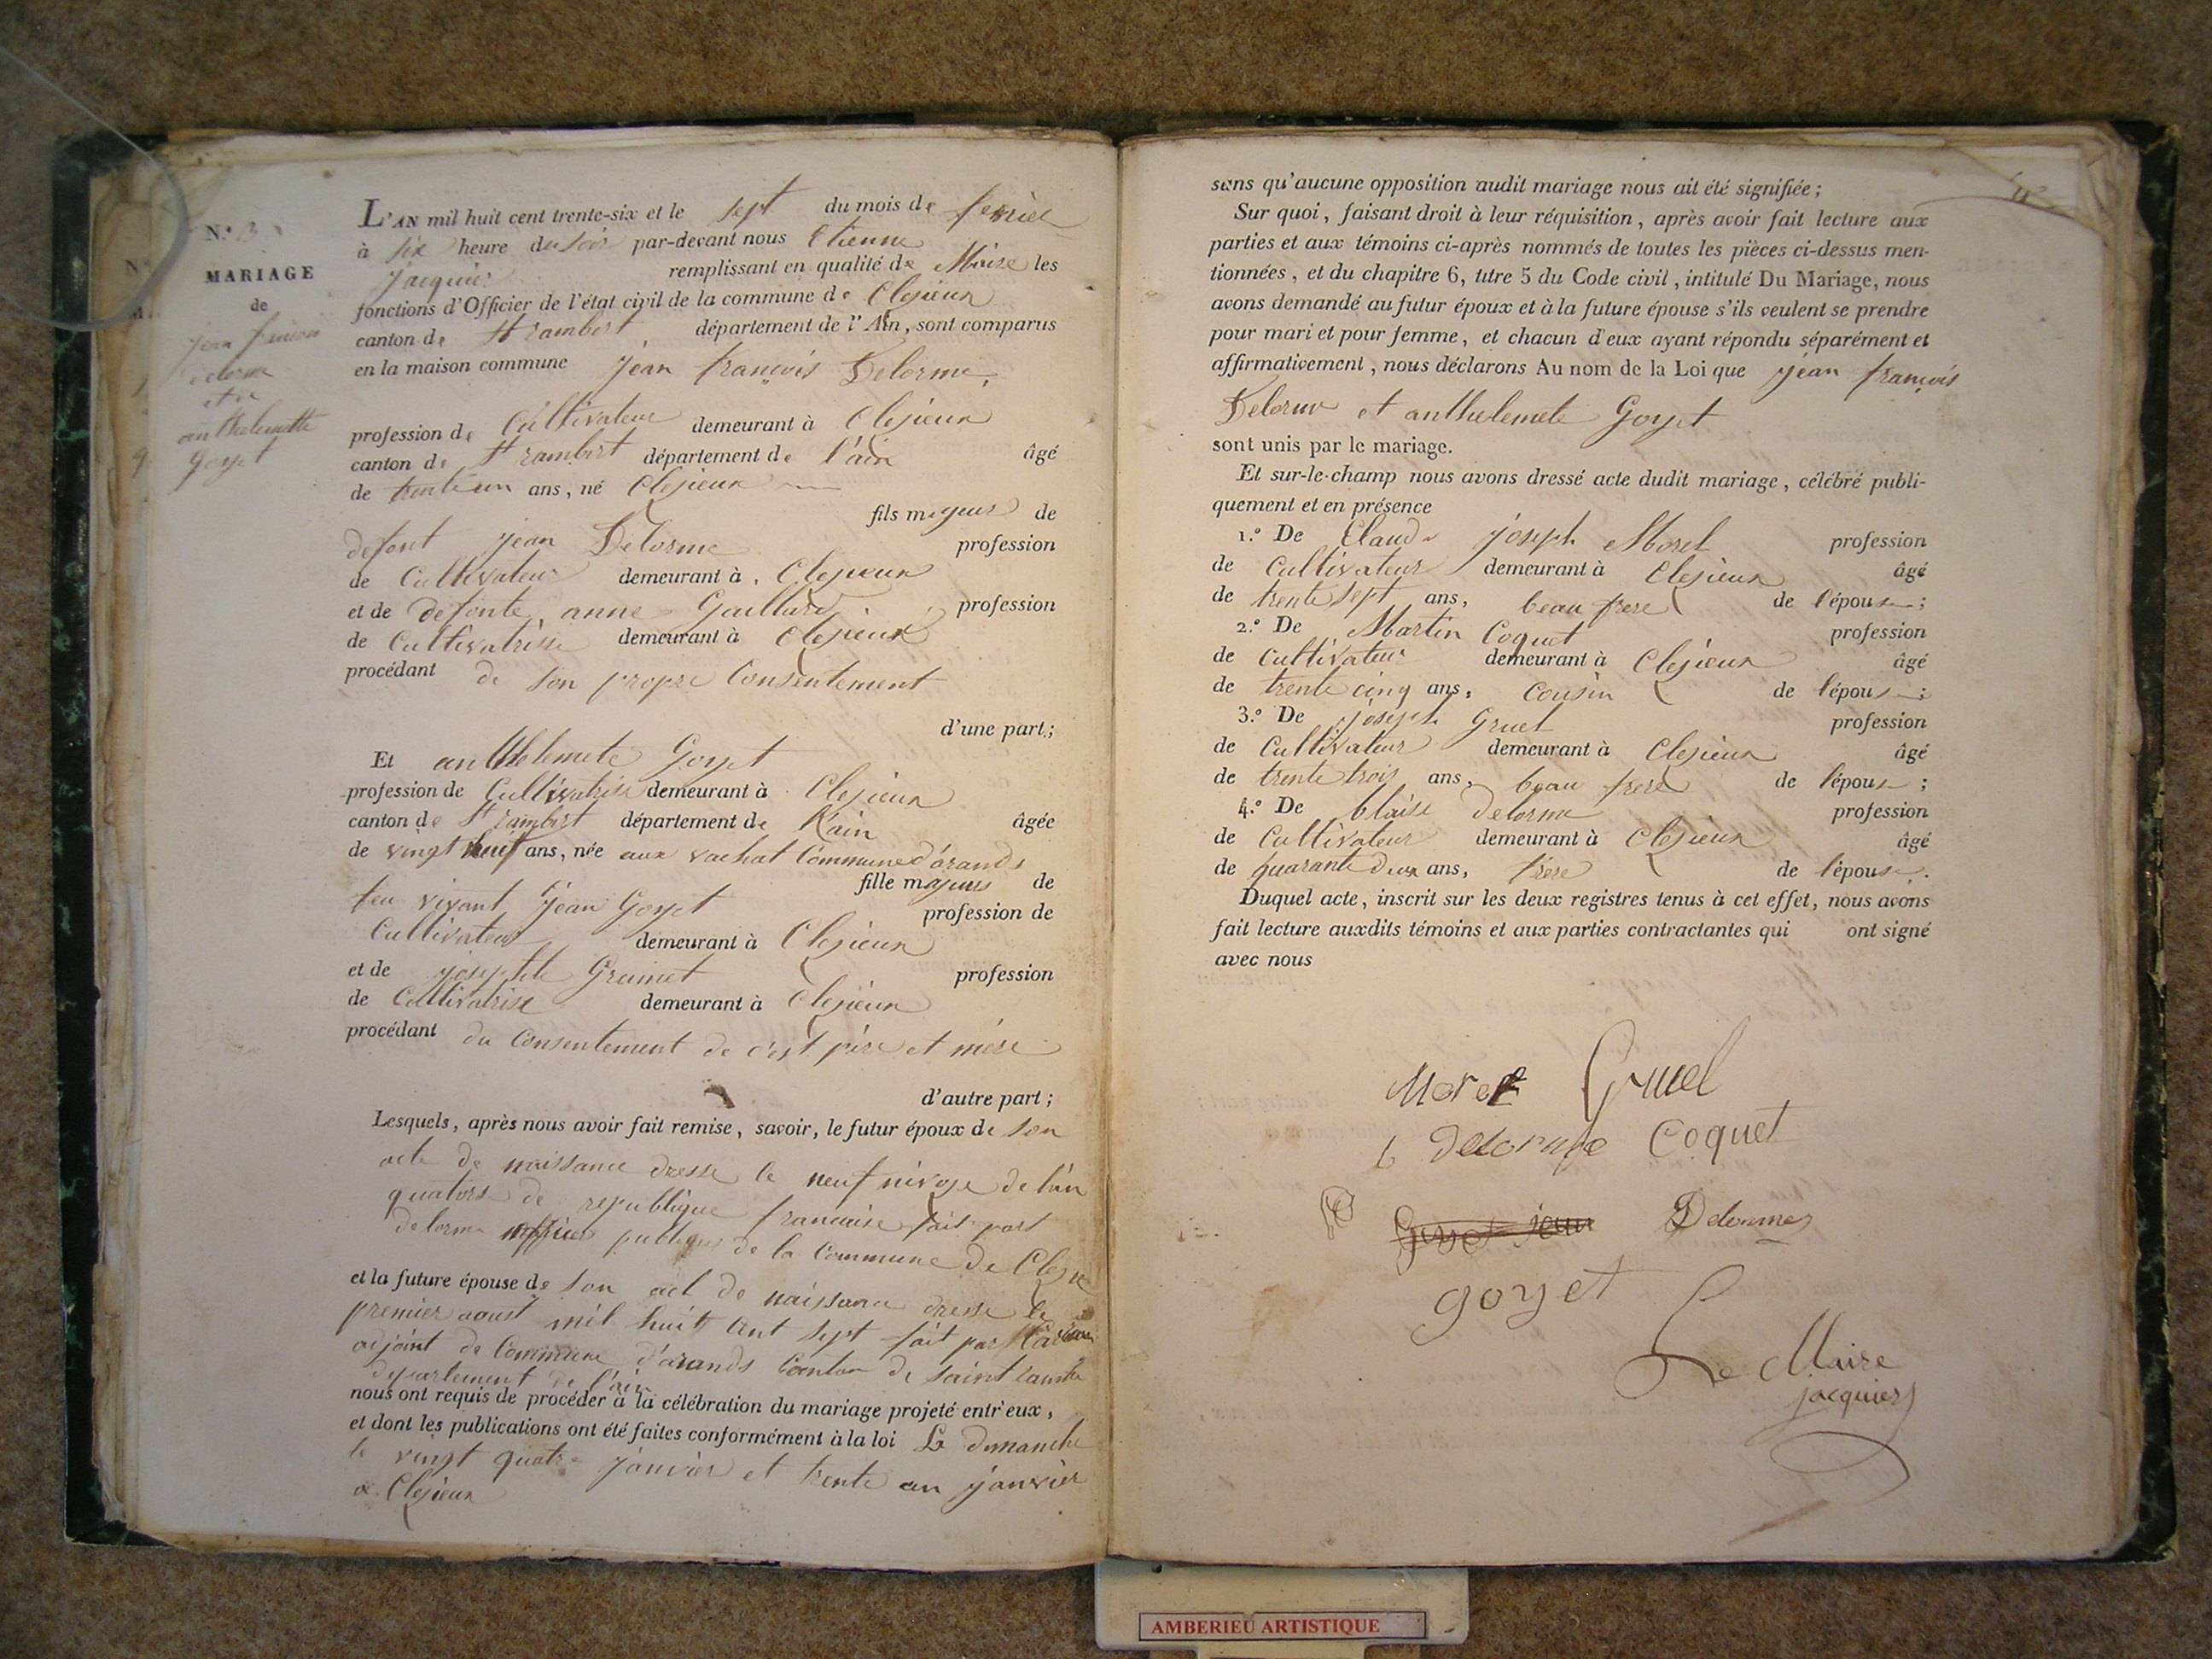 N.º 3
MARIAGE
de
jean francois
delorme
et de
anthelemette
goyet
L'AN mil huit cent trente-six et le sept du mois de fevrier
à six heure du soir par-devant nous Etienne
Jacquier remplissant en qualité de Maire les
fonctions d'Officier de l'état civil de la commune de Clesieux
canton de St rambert département de l'Ain, sont comparus
en la maison commune jean francois Delorme,
profession de Cultivateur demeurant à Clesieux
canton de St rambert département de l'ain âgé
de trente un ans, né Clesieux
fils majeur de
defont jean Delorme profession
de Cultivateur demeurant à Clesieux
et de defonte anne Gaillard profession
de Cultivatrisse demeurant à Clesieux
procédant de son propre Consentement
d'une part;
Et anthelemete Goyet
profession de Cultivatrise demeurant à Clesieux
canton de St rambert département de l'ain âgée
de vingt huit ans, née aux vachat Commune d'arands
fille majeure de
feu vivant Jean Goyet profession de
Cultivateur demeurant à Clesieux
et de josephte Gramet profession
de Cultivatrise demeurant à Clesieux
procédant du Consentement de c'est père et mère
d'autre part;
Lesquels, après nous avoir fait remise, savoir, le futur époux de son
acte de naissance dresse le neuf nivose de l'an
quatorse de republique francaise fait part
delorme officier publique de la Commune de Clesieu
et la future épouse de son act de naissance dresse le
premier aoust mil huit cent sept fait par
adjoint de Commune d'arands Canton de saint rambe
departement de l'ain
nous ont requis de procéder à la célébration du mariage projeté entr'eux,
et dont les publications ont été faites conformément à la loi Le dimanche
le vingt quatre janvier et trente un janvier
a Clesieux
sans qu'aucune opposition audit mariage nous ait été signifiée;
Sur quoi, faisant droit à leur réquisition, après avoir fait lecture aux
parties et aux témoins ci-après nommés de toutes les pièces ci-dessus men-
tionnées, et du chapitre 6, titre 5 du Code civil, intitulé Du Mariage, nous
avons demandé au futur époux et à la future épouse s'ils veulent se prendre
pour mari et pour femme, et chacun d'eux ayant répondu séparément et
affirmativement, nous déclarons Au nom de la Loi que jean francois
Delorme et anthelemete Goyet
sont unis par le mariage.
Et sur-le-champ nous avons dressé acte dudit mariage, célébré publi-
quement et en présence
1.º De Claude joseph Morel profession
de Cultivateur demeurant à Clesieux âgé
de trente sept ans, beau frere de l'épouse;
2.º De Martin Coquet profession
de Cultivateur demeurant à Clesieux âgé
de trente cinq ans, cousin de l'épouse;
3.º De joseph Gruel profession
de Cultivateur demeurant à Clesieux âgé
de trente trois ans, beau frere de l'épouse;
4.º De blaise delorme profession
de Cultivateur demeurant à Clesieux âgé
de quarante deux ans, frère de l'épouse.
Duquel acte, inscrit sur les deux registres tenus à cet effet, nous avons
fait lecture auxdits témoins et aux parties contractantes qui ont signé
avec nous
Morel Gruel
b delorme Coquet
Goyet jean Delorme
goyet
Le Maire
jacquier
AMBERIEU ARTISTIQUE